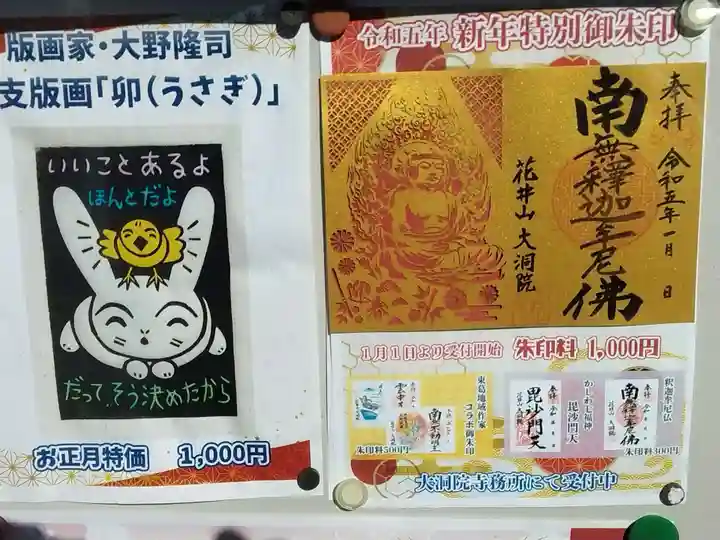 版画家・大野隆司
支版画「卯(うさぎ)」
いいことあるよ
ほんとだよ
だって、そう決めたから
お正月特価 1,000円
令和五年 新年特別御朱印
奉拝 令和五年一月 日
南無釋迦牟尼佛
花井山 大洞院
1月1日より受付開始 朱印料 1,000円
東葛地域作家
コラボ御朱印
朱印料500円
かしわ七福神
毘沙門天
毘沙門天
釈迦牟尼仏
南無釋迦牟尼佛
朱印料300円
大洞院寺務所にて受付中